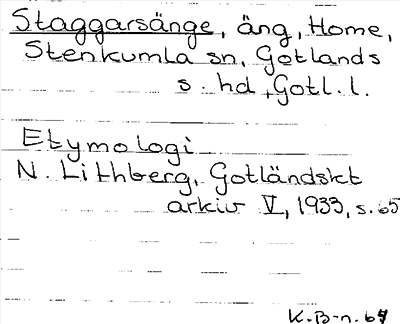 Staggarsänge, äng, Home,
Stenkumla sn, Gotlands
s. hd, Gotl. l.
Etymologi
N. Lithberg, Gotländskt
arkiv V, 1933, s. 65
K.B-n.